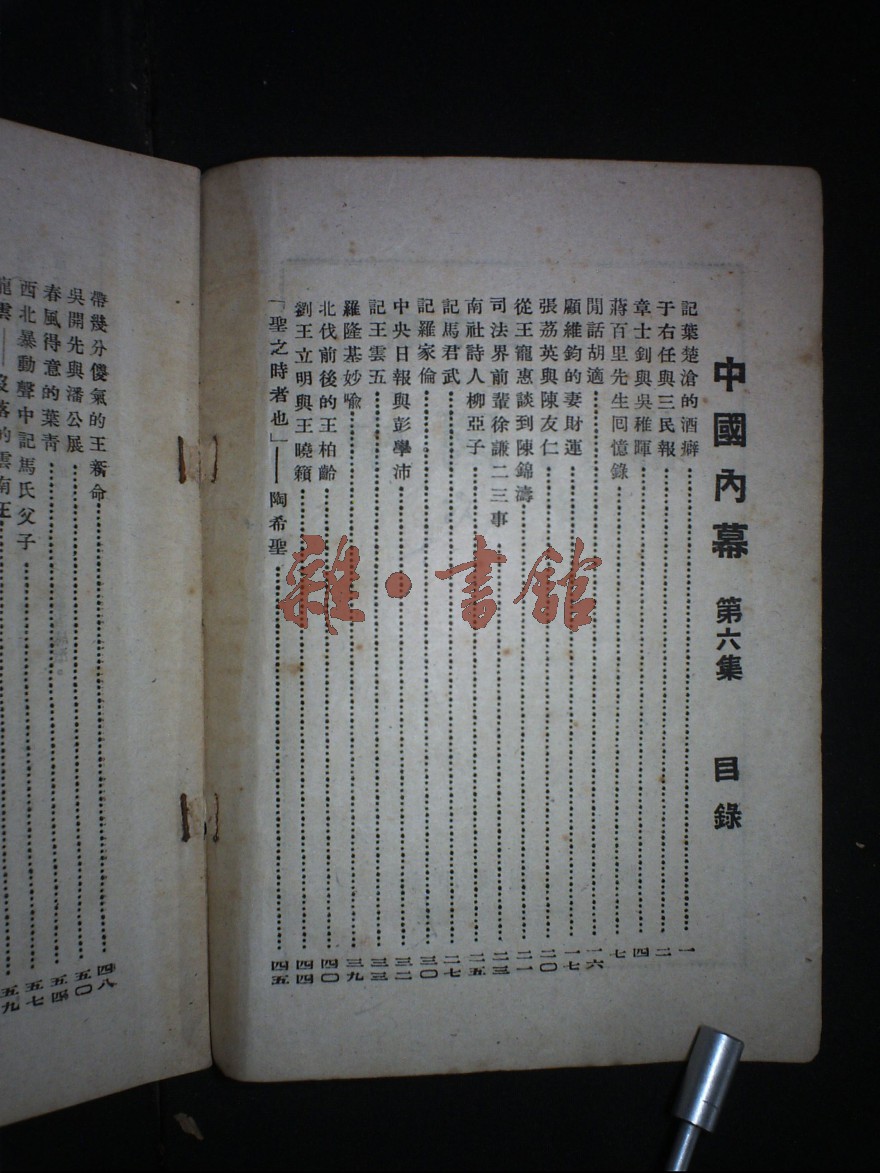 中國內幕 第六集 目錄
記葉楚滄的酒癖……一
于右任與三民報……二
章士釗與吳稚暉……四
蔣百里先生回憶錄……七
閒話胡適……一六
顧維鈞的妻財運……一七
張荔英與陳友仁……二〇
從王寵惠談到陳錦濤……二一
司法界前輩徐謙二三事……二三
南社詩人柳亞子……二五
記馬君武……二七
記羅家倫……三〇
中央日報與彭學沛……三二
記王雲五……三三
羅隆基妙喩……三九
北伐前後的王柏齡……四〇
劉王立明與王曉籟……四四
「聖之時者也」——陶希聖……四五
帶幾分傻氣的王新命……四八
吳開先與潘公展……五〇
春風得意的葉青……五四
西北暴動聲中記馬氏父子……五七
龍雲——沒落的雲南王……五九
雜·書館